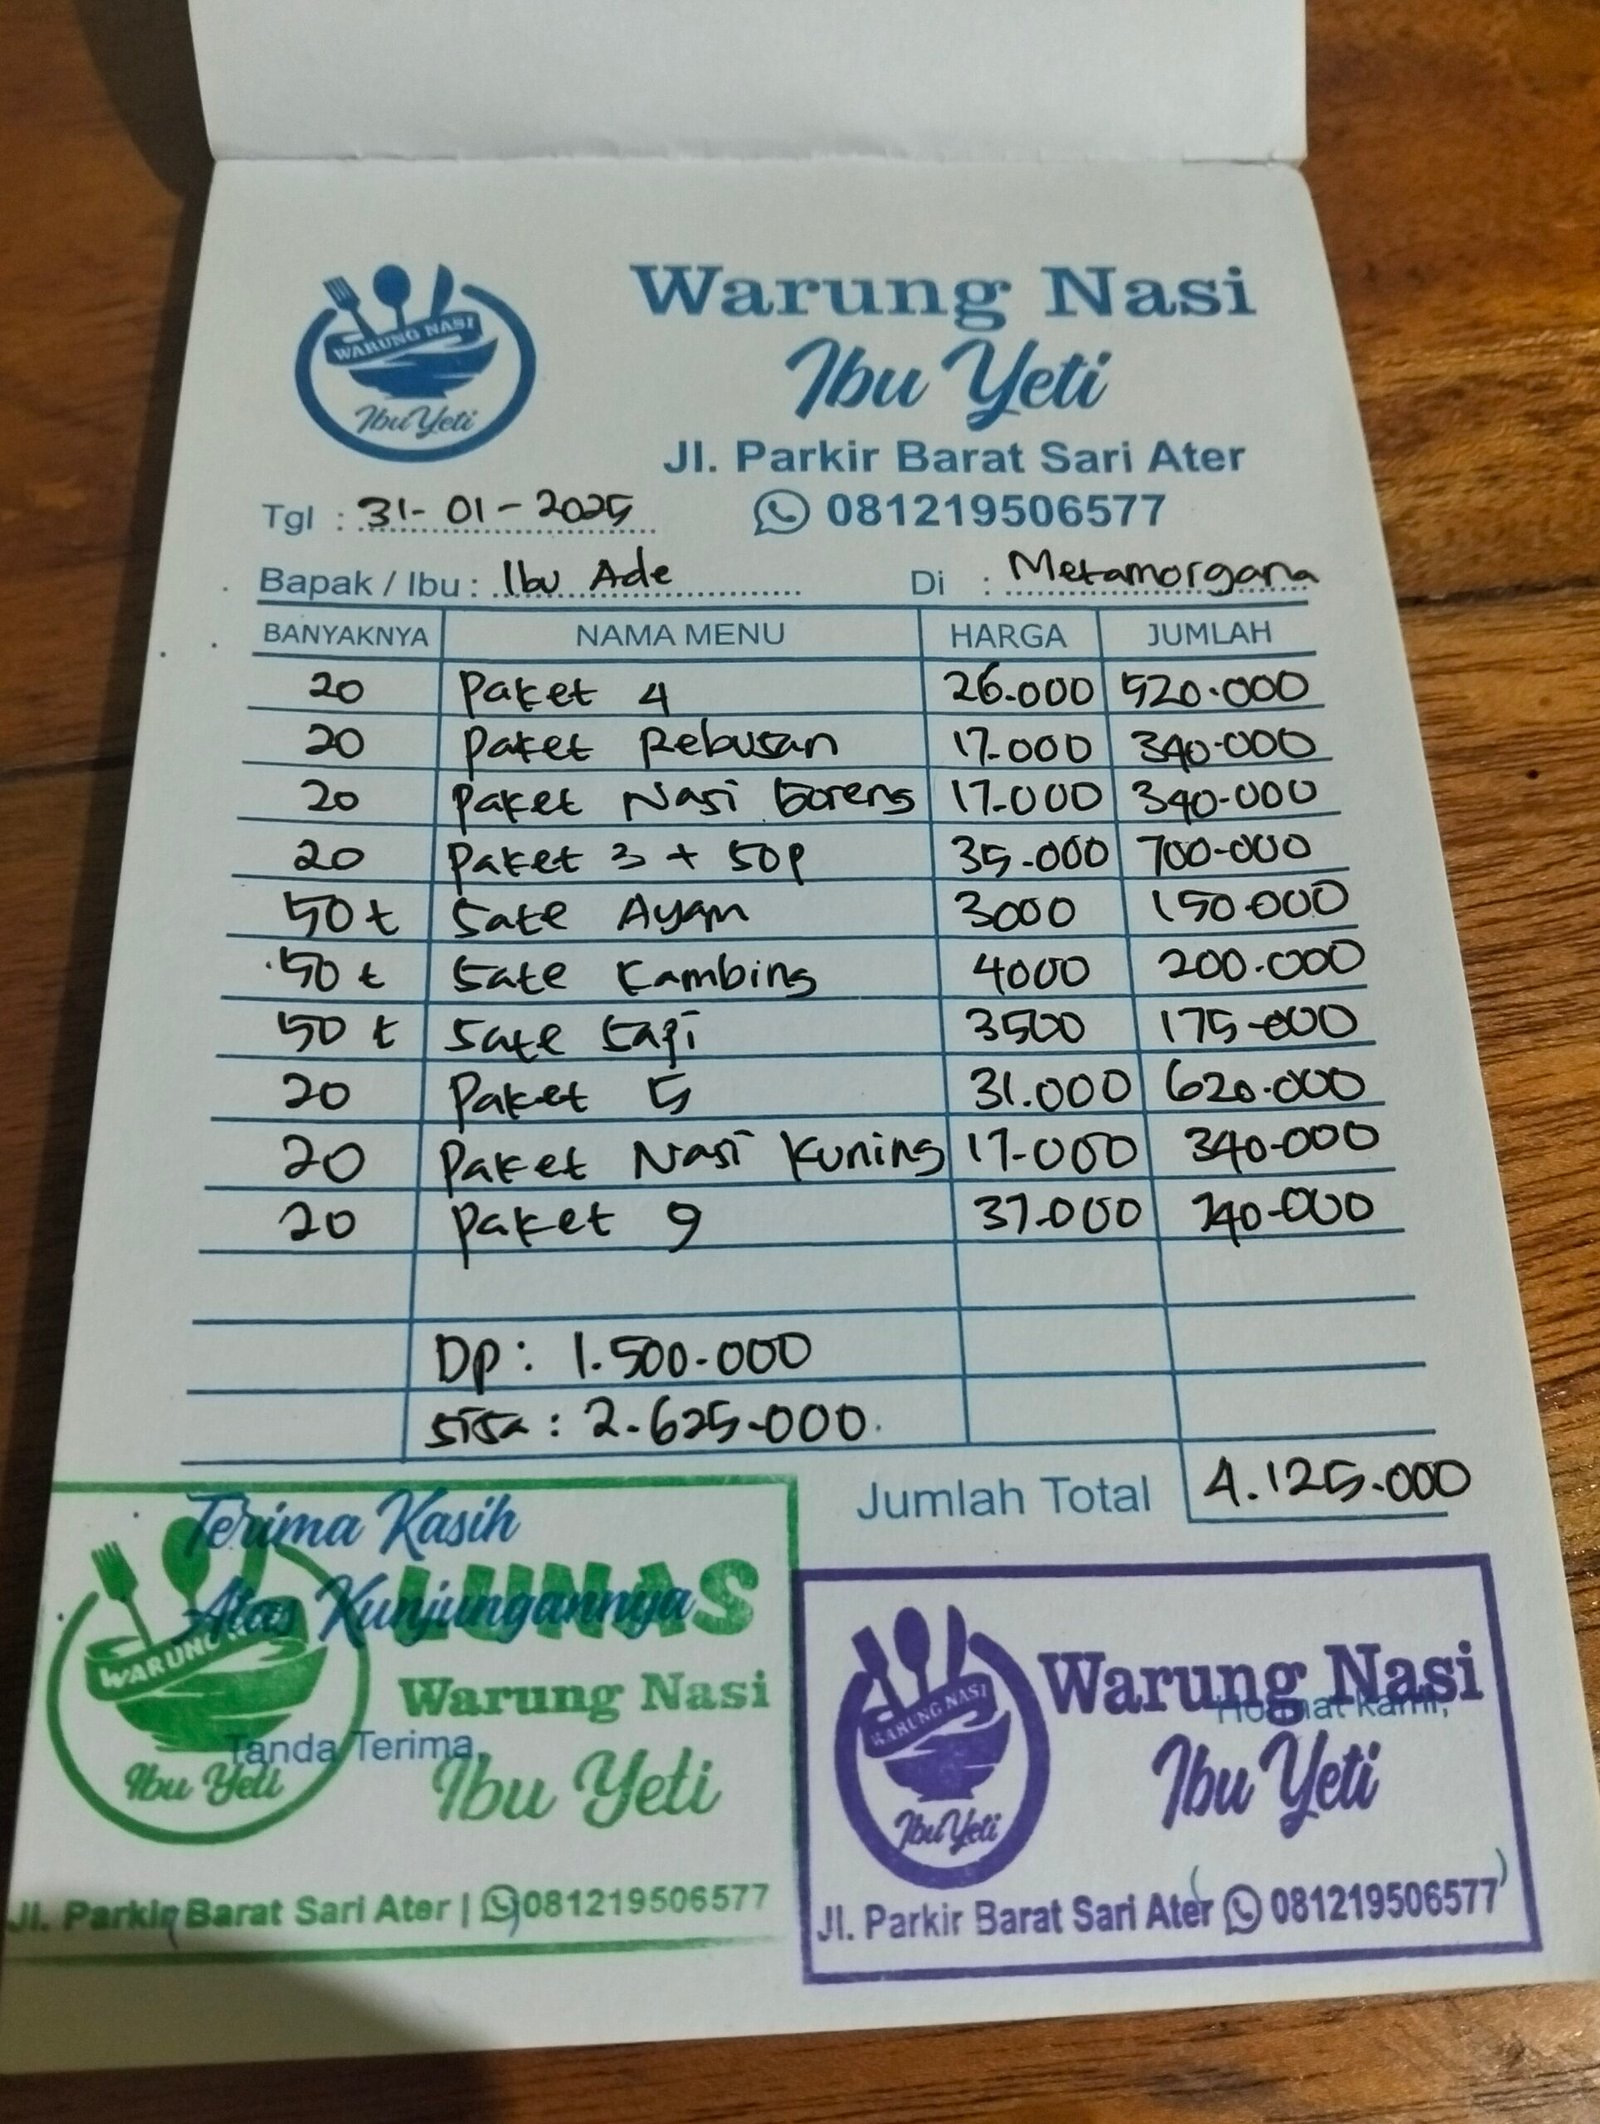 WARUNG NASI
Ibu Yeti
Warung Nasi
Ibu Yeti
Jl. Parkir Barat Sari Ater
Tgl : 31-01-2025 081219506577
Bapak / Ibu : Ibu Ade Di : Metamorgana
BANYAKNYA NAMA MENU HARGA JUMLAH
20 Paket 4 26.000 520.000
20 Paket Rebusan 17.000 340.000
20 Paket Nasi Goreng 17.000 340.000
20 Paket 3 + SOP 35.000 700.000
50 t Sate Ayam 3000 150.000
50 t Sate Kambing 4000 200.000
50 t Sate Sapi 3500 175.000
20 Paket 5 31.000 620.000
20 Paket Nasi Kuning 17.000 340.000
20 Paket 9 37.000 740.000
DP : 1.500.000
Sisa : 2.625.000
Jumlah Total 4.125.000
Terima Kasih
Atas Kunjungannya
LUNAS
WARUNG
Ibu Yeti
Warung Nasi
Ibu Yeti
Tanda Terima,
Jl. Parkir Barat Sari Ater | 081219506577
WARUNG NASI
Ibu Yeti
Warung Nasi
Hormat Kami,
Ibu Yeti
Jl. Parkir Barat Sari Ater 081219506577